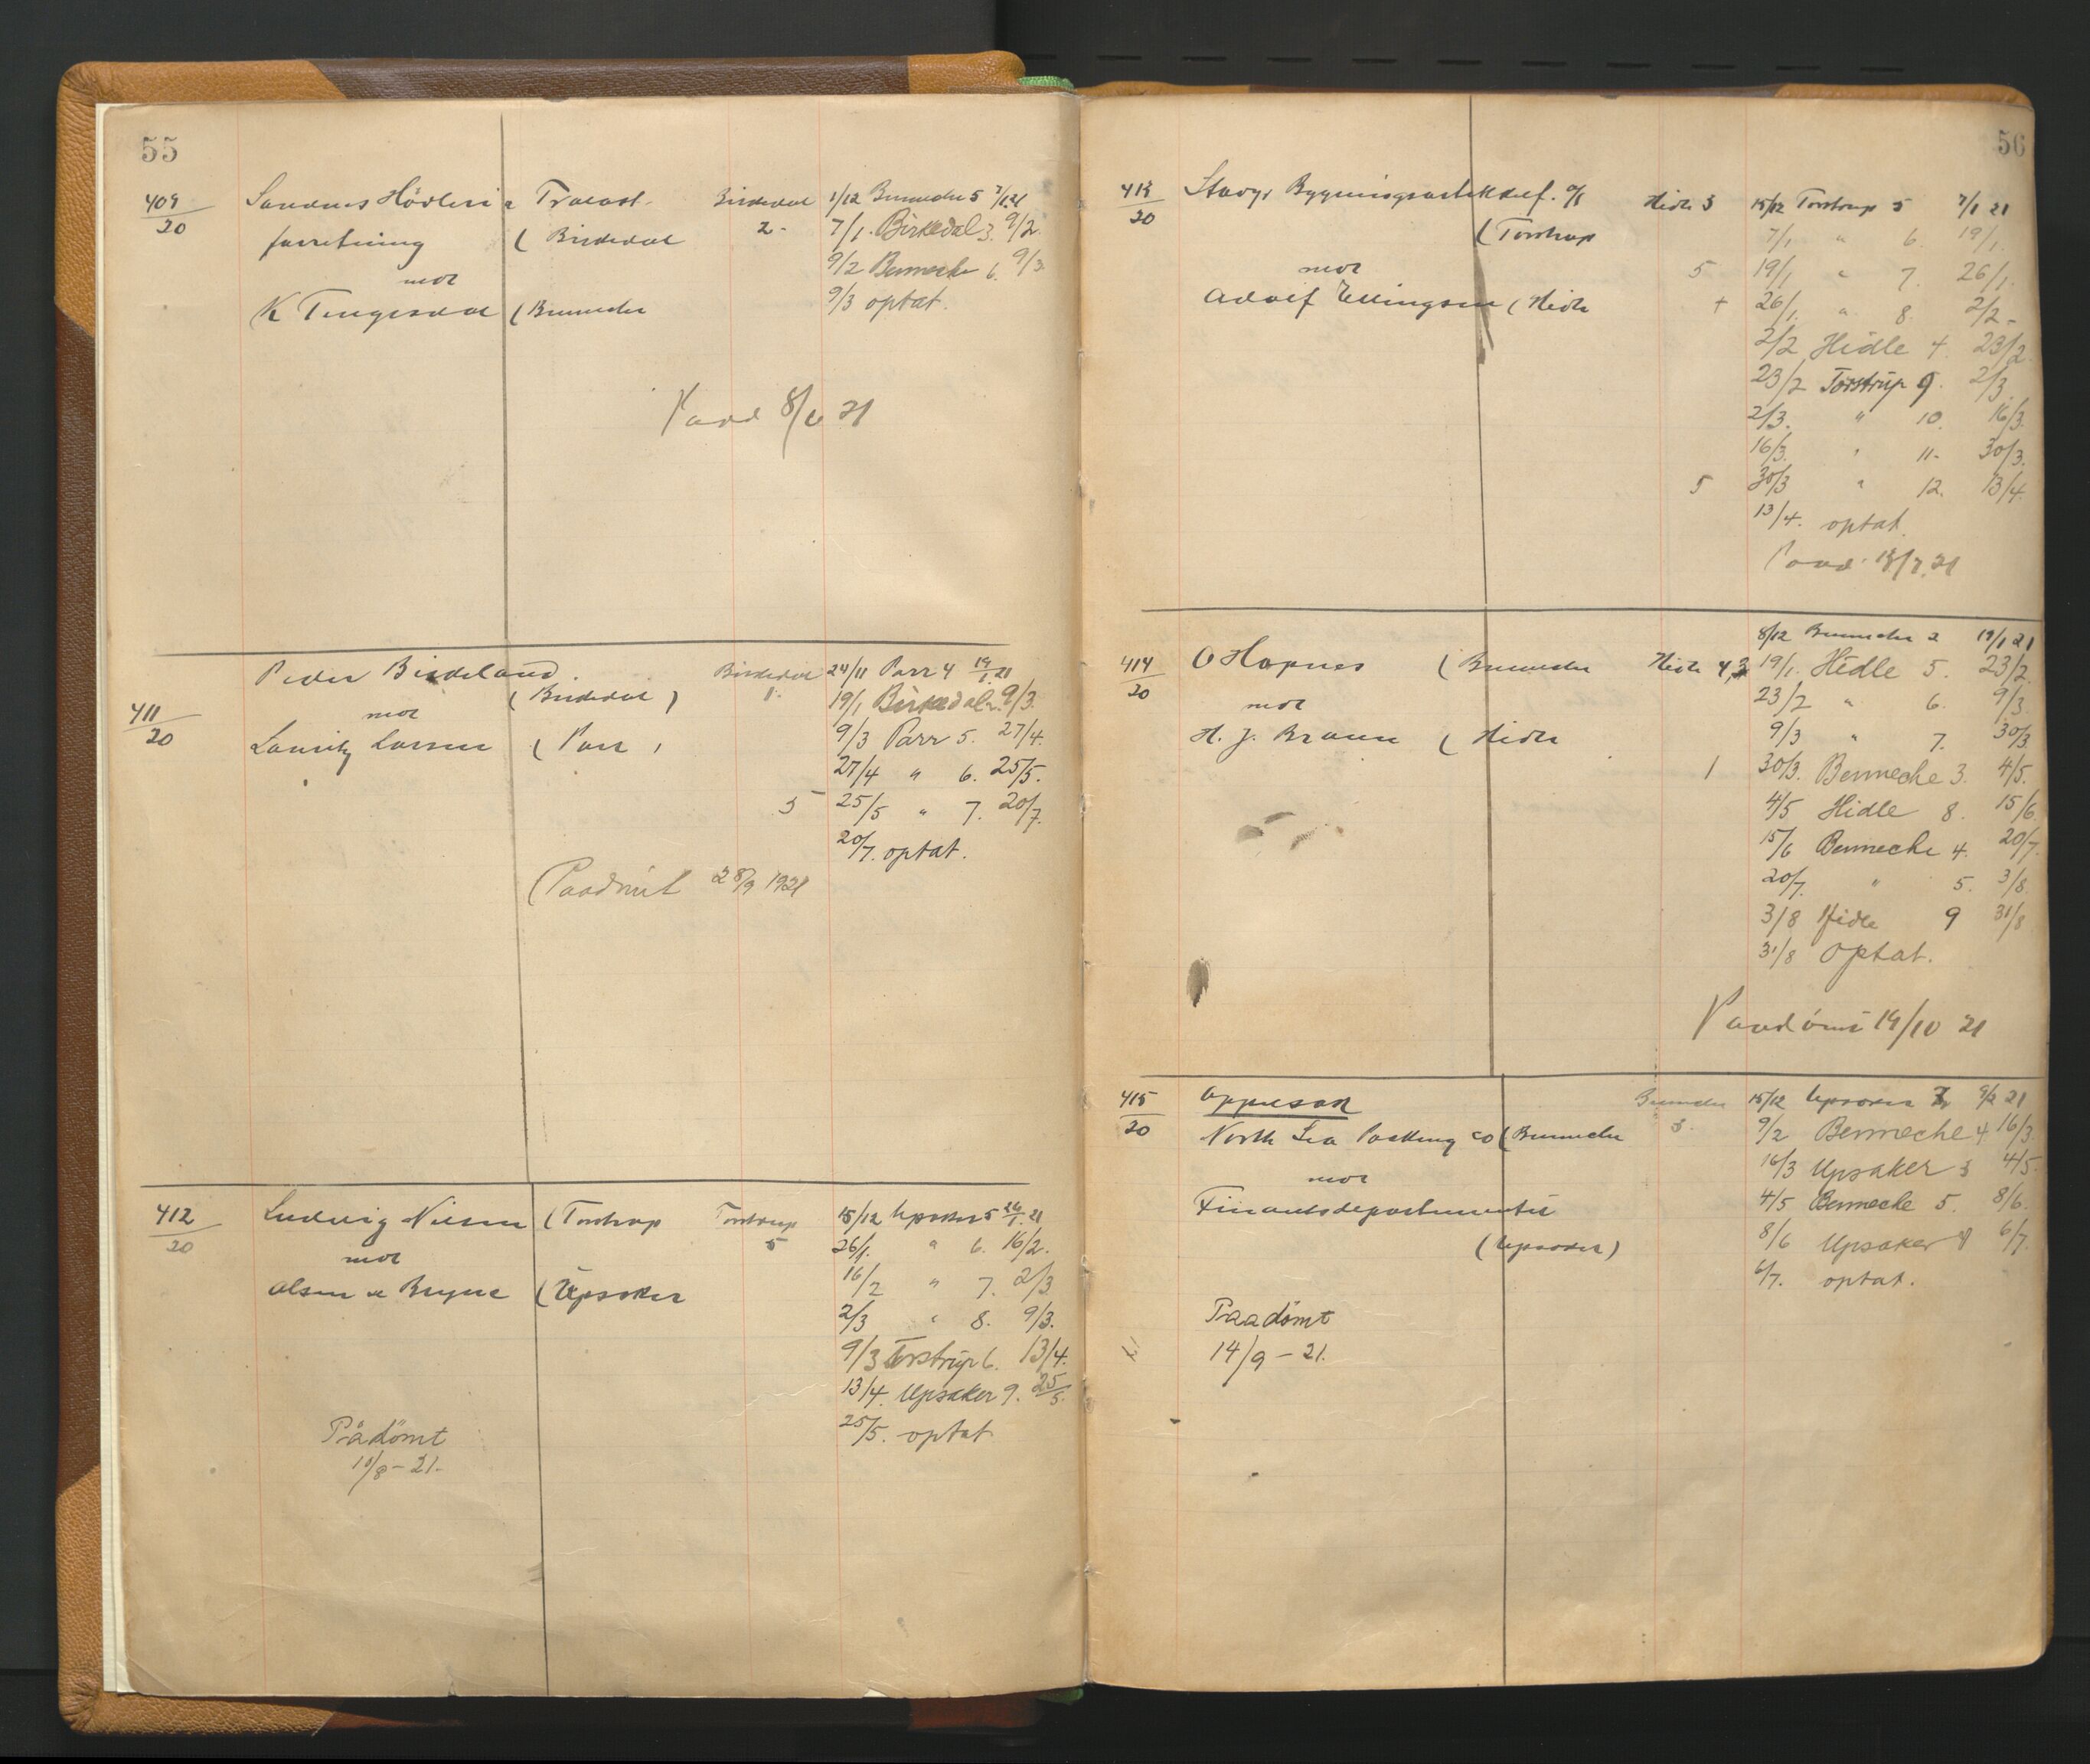 55
409/20 Sandnes Høvleri & Trælast- Birkedal 1/12 Bennecke 5 7/1 21
forretning ( Birkedal 2- 7/1. Birkedal 3. 9/2.
mot 9/2 Bennecke 6. 9/3
K Tengesdal ( Bennecke 9/3 optat.
Paad 8/6 21
Peder Birkeland Birkedal 24/11 Parr 4 19/1 21
( Birkedal ) 1. 19/1 Birkedal 2. 9/3.
411/20 mot
Lauritz Larsen ( Parr ) 9/3 Parr 5. 27/4.
27/4 " 6. 25/5.
5 25/5 " 7. 20/7.
20/7. optat.
Paadømt 28/9 1921
412/20 Ludvig Nilsen ( Torstrup Torstrup 15/12 Upsaker 5 26/1. 21
5 26/1. " 6. 16/2.
mot 16/2 " 7. 2/3
Olsen & Bryne ( Upsaker 2/3 " 8. 9/3.
9/3 Torstrup 6. 13/4.
13/4. Upsaker 9. 25/5.
25/5. optat
Pådömt
10/8 - 21.
56
413/20 Stavgr Bygningsartikkelf. A/S Hidle 3 15/12 Torstrup 5 7/1 21
( Torstrup 7/1 " 6. 19/1.
mot 5 19/1 " 7. 26/1.
Adolf Ellingsen ( Hidle + 26/1. " 8. 2/2 -
2/2 Hidle 4. 23/2.
23/2 Torstrup 9. 2/3.
2/3. " 10. 16/3.
16/3. " 11- 30/3.
5 30/3 " 12. 13/4.
13/4. optat.
Paad. 13/7. 21
8/12 Bennecke 2 19/1 21
414/20 O Hapnes ( Bennecke Hidle 4, 3 19/1. Hidle 5. 23/2.
mot 23/2 " 6. 9/3.
H. J. Braun ( Hidle 9/3 " 7. 30/3.
1 30/3. Bennecke 3. 4/5.
4/5 Hidle 8. 15/6.
15/6 Bennecke 4. 20/7.
20/7. " 5. 3/8.
3/8 Hidle 9 31/8
31/8 optat.
Paadømt 14/10 21
415/20 Oppresak Bennecke 15/12 Upsaker 2 9/2 21
North Sea Packing Co ( Bennecke 3. 9/2 Bennecke 4 16/3.
mot 16/3 Upsaker 3 4/5.
Finantsdepartementet 4/5 Bennecke 5. 8/6.
( Upsaker ) 8/6 Upsaker 4 6/7.
6/7. optat.
Paadömt
14/9 - 21.